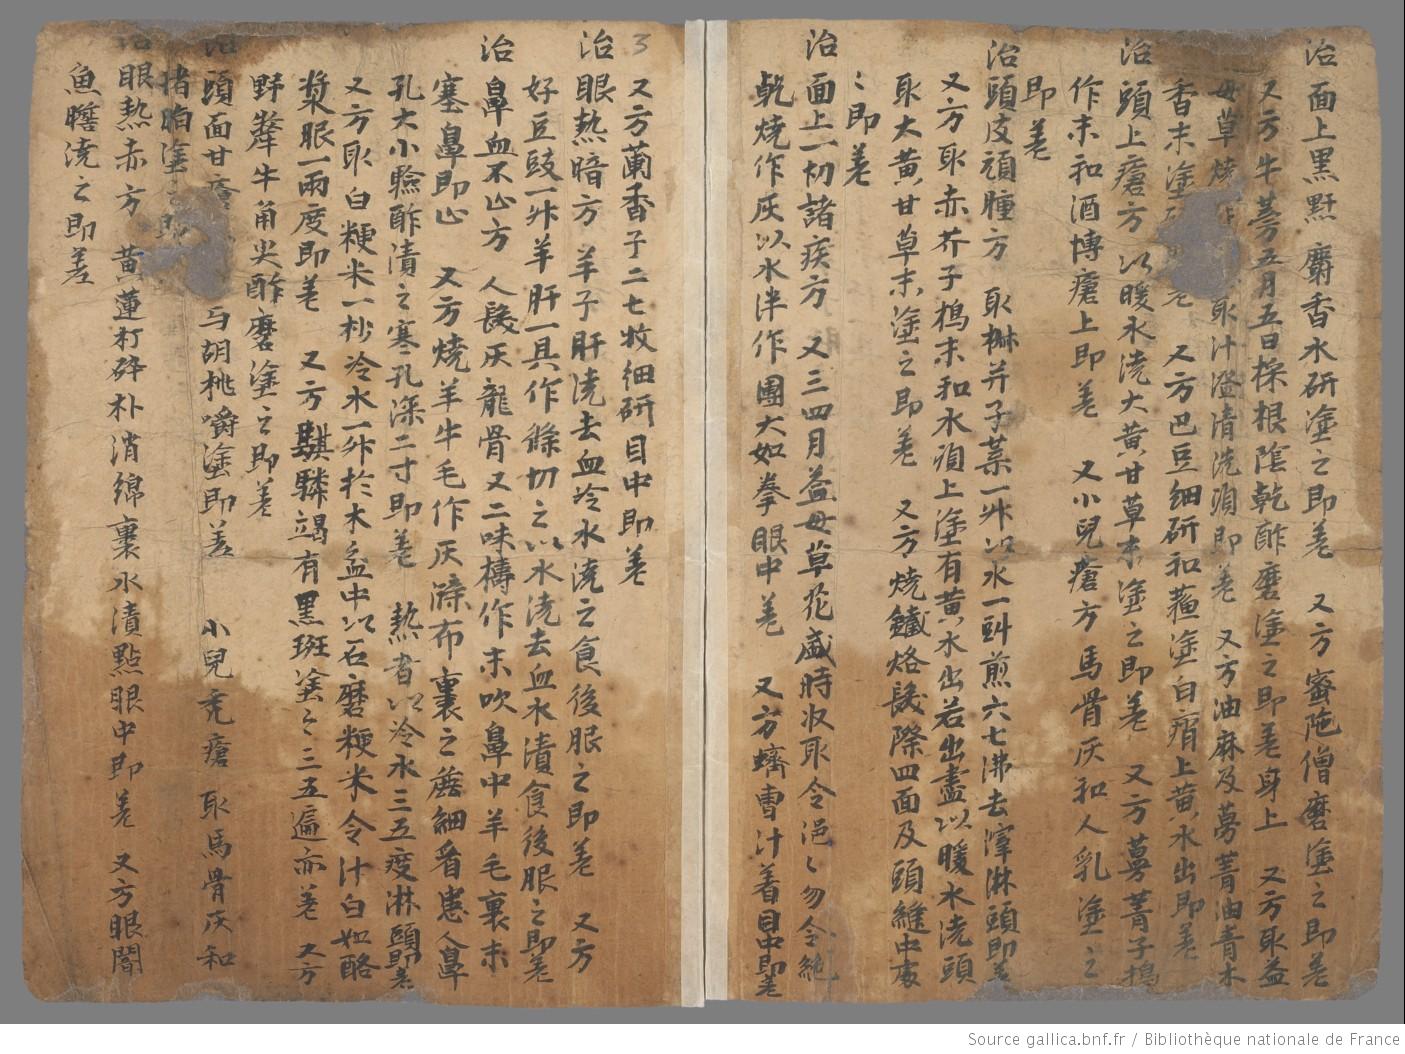 治面上黑䵟 麝香水研塗之即差 又方蜜陁僧磨塗之即差
又方牛蒡五月五日採根陰乾酢磨塗之即差身上 又方取益
母草燒 取汁澄清洗頭即差 又方油麻及蔓菁油青木
香末塗 差 又方巴豆細研和 塗白 上黃水出即差
治頭上瘡方以暖水洗大黃甘草末塗之即差 又方蔓菁子搗
作末和酒博瘡上即差 又小兒瘡方馬骨灰和人乳塗之
即差
治頭皮頑腫方 取 并子葉一升以水一㪷煎六七沸去滓淋頭即差
又方取赤芥子搗末和水 上塗有黃水出若出盡以暖水洗頭
取大黃甘草末塗之即差 又方燒鐵烙髮際四面及頭縫中
〻即差
治面上一切諸疾方 又三四月益母草花盛時收取令浥〻勿令絶
乾燒作灰以水洋作團大如拳眼中差 又方蠐曹汁着目中即差
3
又方蘭香子二七枚細研目中即差
治眼熱暗方 羊子肝澆去血冷水澆之食後服之即差 又方
好豆豉一升羊肝一具作條切之以水澆去血水漬食後服之即差
治鼻血不止方 人髮灰龍骨又二味擣作末吹鼻中羊毛裹末
塞鼻即止 又方燒羊牛毛作灰 布裹之 細看患人鼻
孔大小 酢漬之塞孔深二寸即差 熱者以冷水三五度淋頭即差
又方取白粳米一抄冷水一升於木盆中以石磨粳米令汁白如酪
漿服一兩度即差 又方騏驎竭有黑斑塗之三五遍亦差 又方
野犛牛角尖酢磨塗之即差
治頭面甘瘡 与胡桃嚼塗即差 小兒禿瘡 取馬骨灰和
猪脂塗之即
治眼熱赤方 黃蓮打碎朴消綿裹水漬點眼中即差 又方眼闇
魚膽澆之即差
Source gallica.bnf.fr / Bibliothèque nationale de France